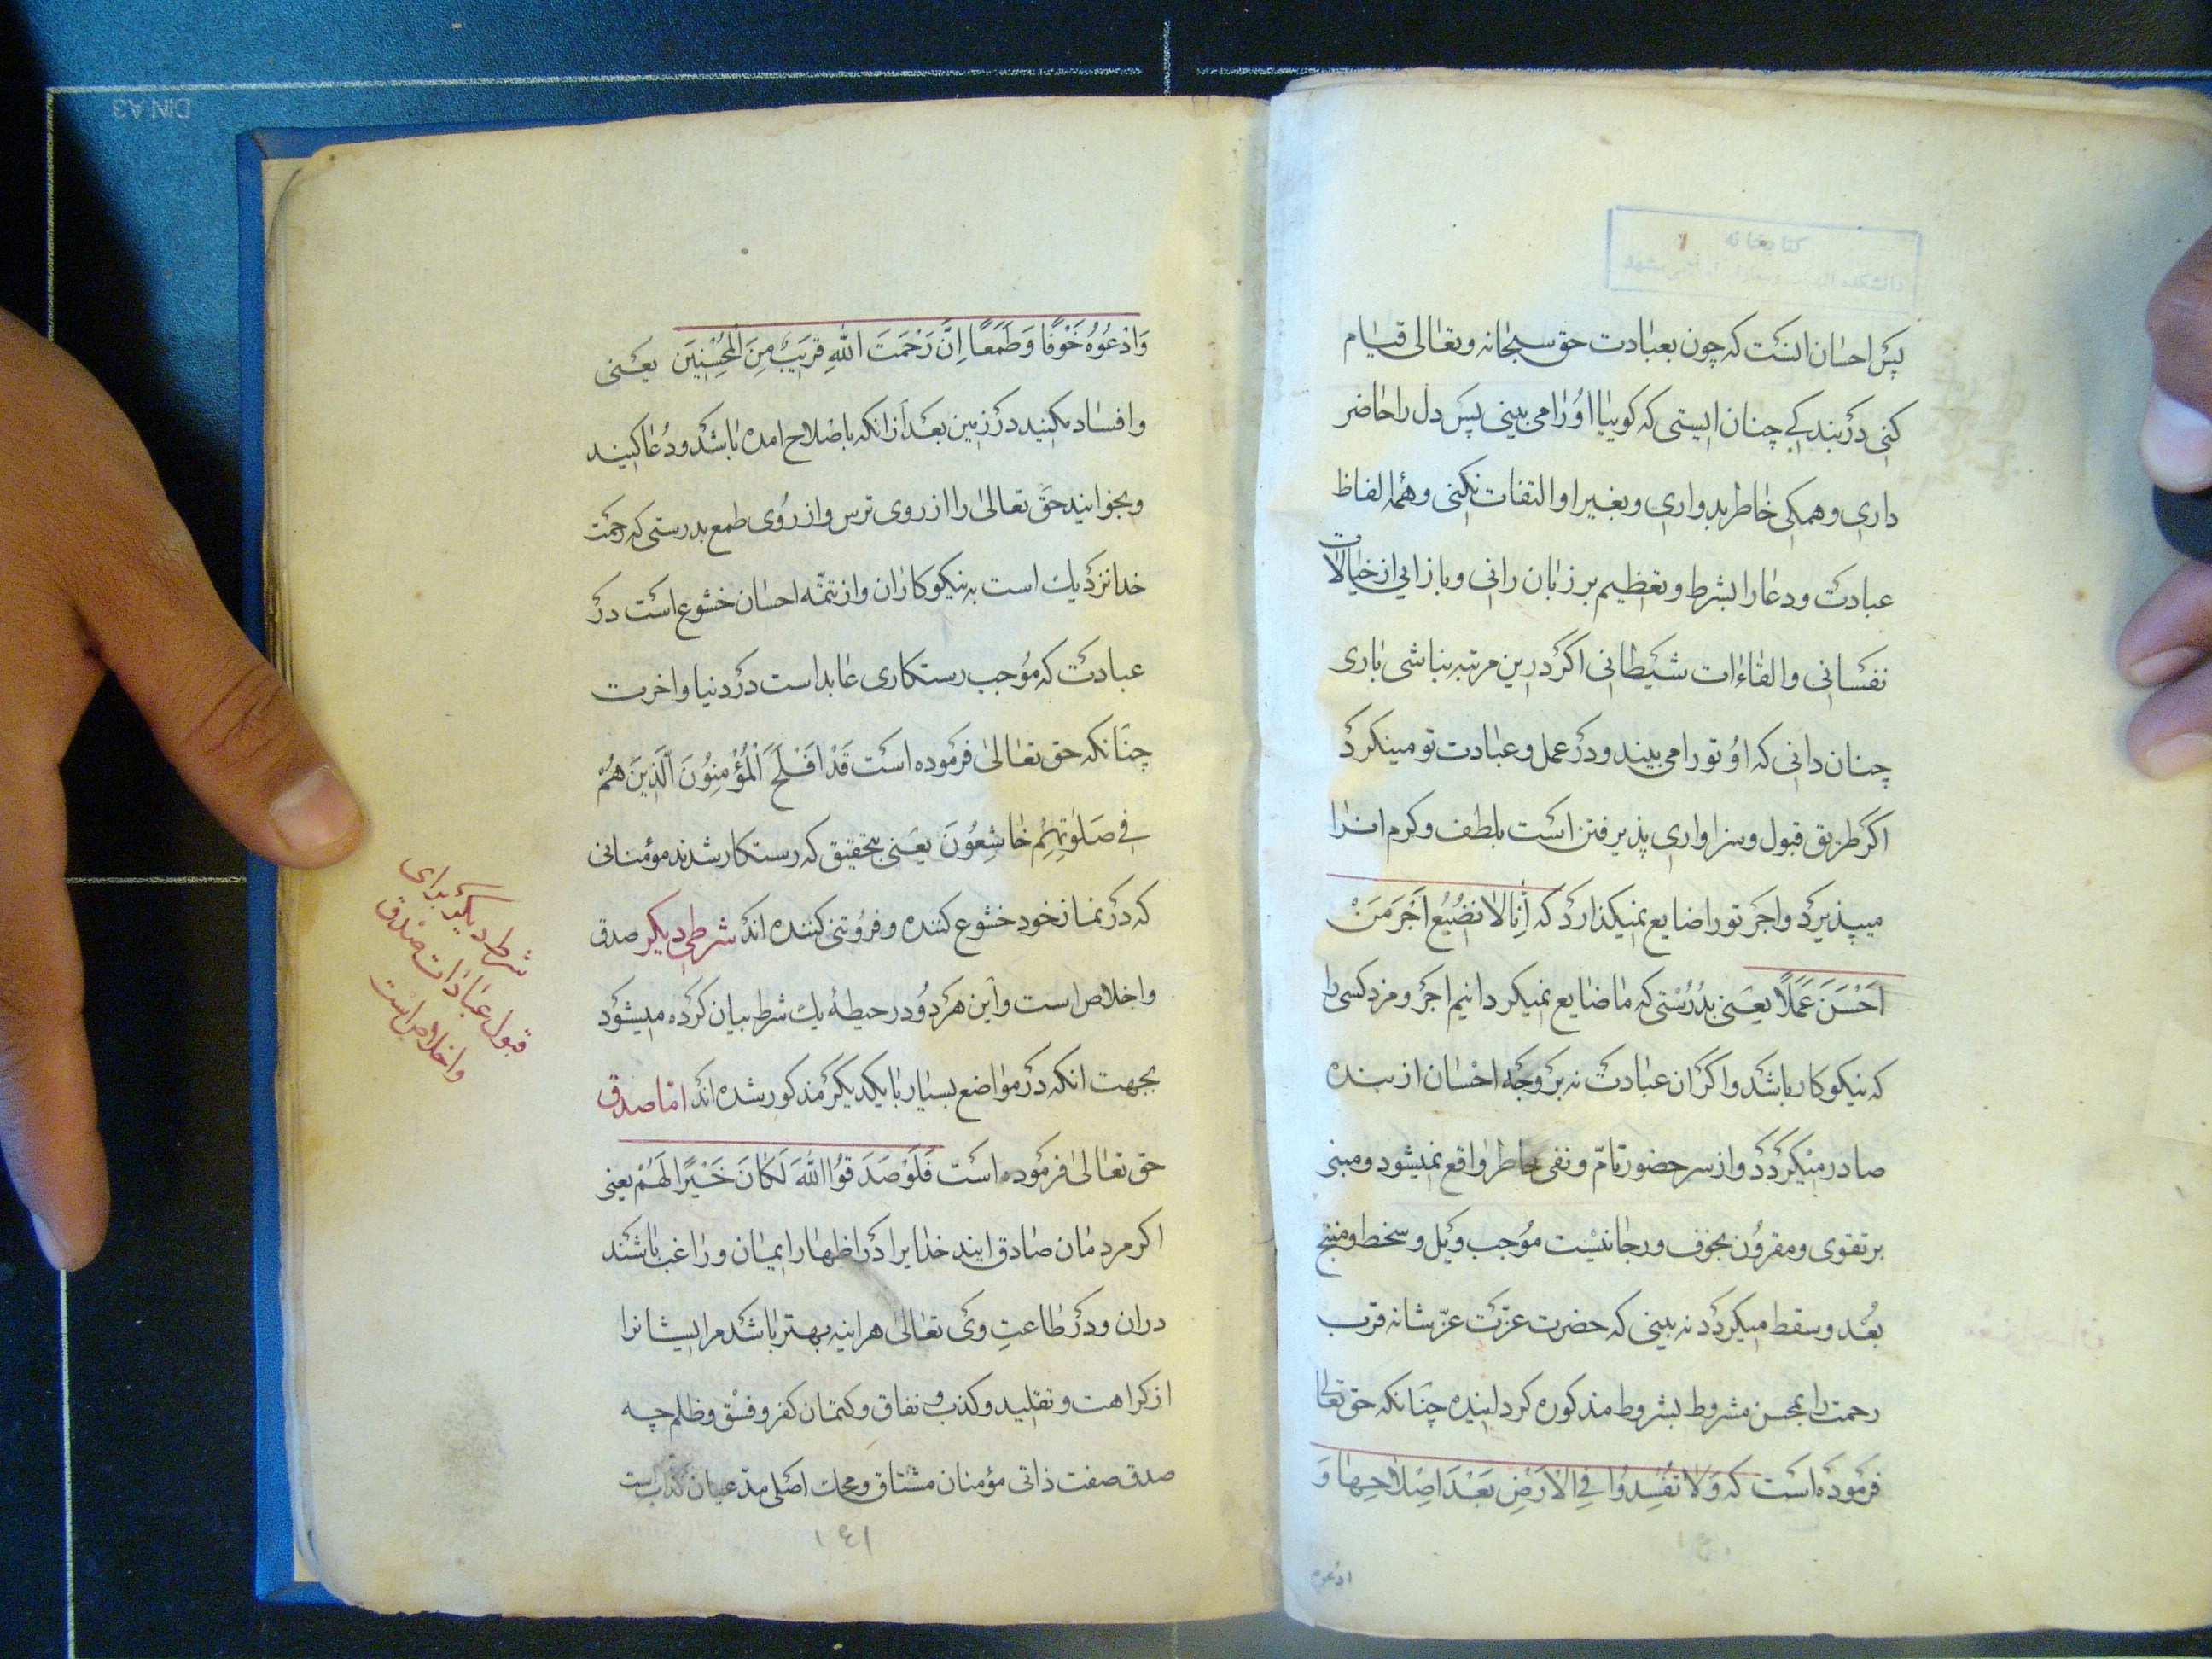 کتابخانه
پس احسان انست که چون بعبادت حق سبحانه و تعالی قیام
کنی در بندکی چنان ایستی که کوییا او را می بینی پس دل را حاضر
داری و همکی خاطر بدو اری و بغیر او التفات نکنی و همه الفاظ
عبادت و دعا را بشرط و تعظیم بر زبان رانی و باز ایی از خیالات
نفسانی و القاءات شیطانی اکر درین مرتبه نباشی باری
چنان دانی که او تو را می بیند و در عمل و عبادت تو مینکرد
اکر طریق قبول و سزاواری پذیرفتن است بلطف و کرم انرا
میپذیرد و اجر تو را ضایع نمیکذارد که اِنا لا نُضیعُ اَجْرَ مَنْ
اَحْسَنَ عَمَلًا یعنی بدرستی که ما ضایع نمیکردانیم اجر و مزد کسی را
که نیکوکار باشد و اکر ان عبادت نه بر وجه احسان از بنده
صادر میکردد و از سر حضور تامّ و نفی خاطر واقع نمیشود و مبنی
بر تقوی و مقرون بخوف و رجا نیست موجب ویل و سخط و منتج
بُعد و سقط میکردد نه بینی که حضرت عزّت عزّ شانه قرب
رحمت را بمحسن مشروط بشروط مذکوره کردانیده چنانکه حق تعالی
فرموده است که وَلا تُفْسِدُوا فِی الْاَرْضِ بَعْدَ اِصْلاحِها وَ
ادعوه
وَادْعُوهُ خَوْفًا وَ طَمَعًا اِنَّ رَحْمَتَ اللهِ قَریبٌ مِنَ الْمُحْسِنینَ یعنی
و افساد مکنید در زمین بعد از انکه باصلاح امده باشد و دعا کنید
و بخوانید حق تعالی را از روی ترس و از روی طمع بدرستی که رحمت
خدا نزدیك است به نیکوکاران و از تتمّه احسان خشوع است در
عبادت که موجب رستکاری عابد است در دنیا و اخرت
چنانکه حق تعالی فرموده است قَدْ اَفْلَحَ الْمُؤْمِنُونَ اَلَّذینَ هُمْ
فی صَلوتِهِمْ خاشِعُونَ یعنی بتحقیق که رستکار شدند مؤمنانی
که در نماز خود خشوع کننده و فروتنی کننده اند شرطی دیکر صدق
و اخلاص است و این هر دو در حیطهٔ یك شرط بیان کرده میشود
بجهت انکه در مواضع بسیار با یکدیکر مذکور شده اند امّا صدق
حق تعالی فرموده است فَلَوْ صَدَقُوا اللهَ لَکانَ خَیْرًا لَهُمْ یعنی
اکر مردمان صادق ایند خدایرا در اظهار ایمان و راغب باشند
دران و در طاعتِ وی تعالی هراینه بهتر باشد مر ایشانرا
از کراهت و تقلید و کذب و نفاق و کتمان کفر و فسق و ظلم چه
صدق صفت ذاتی مؤمنان مشتاق و محك اصلی مدّعیان کذاب است
۱۴۱
شرط دیکر برای
قبول عبادات صدق
و اخلاص است
DIN A3